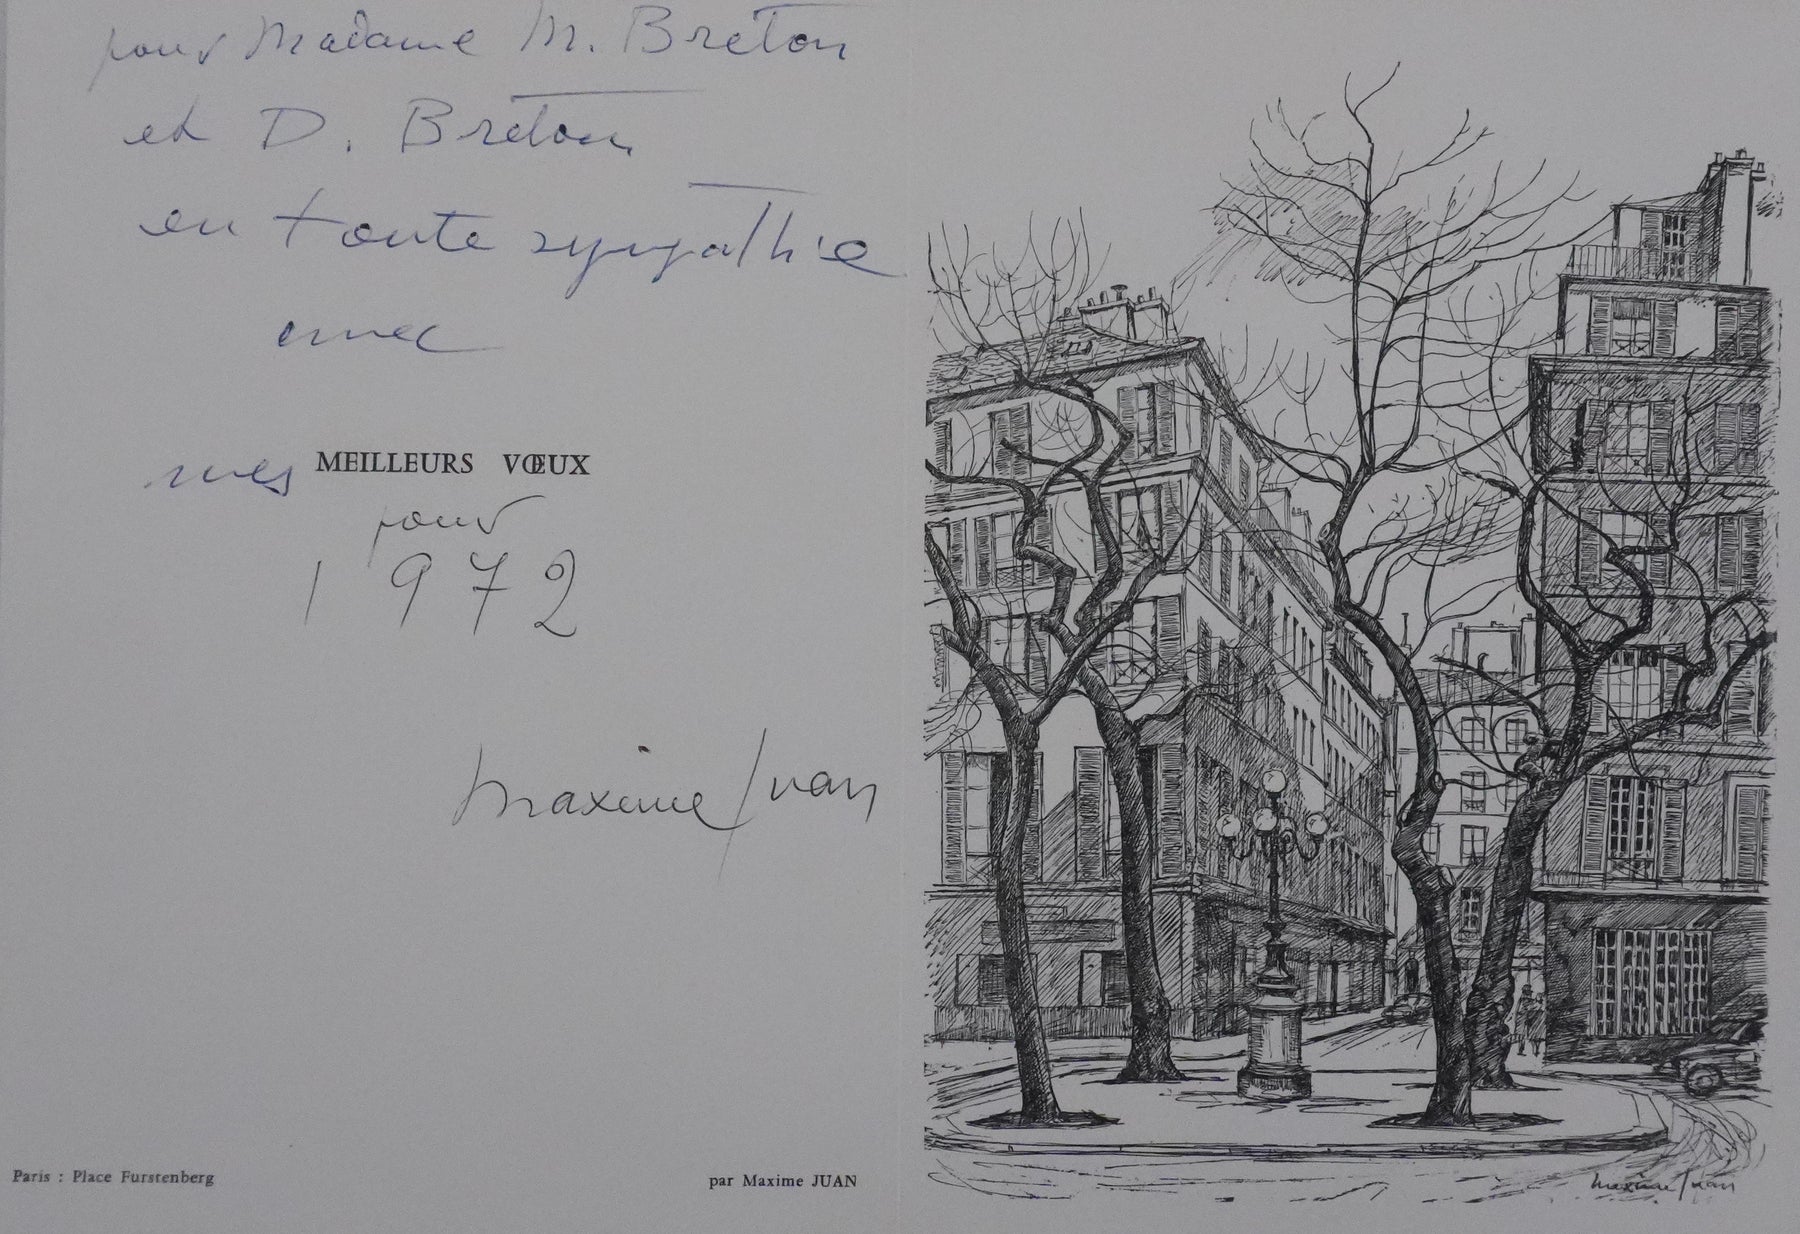 pour Madame M. Breton
et D. Breton
en toute sympathie
avec
mes MEILLEURS VŒUX
pour
1972
Maxime Juan
Paris : Place Furstenberg
par Maxime JUAN
Maxime Juan